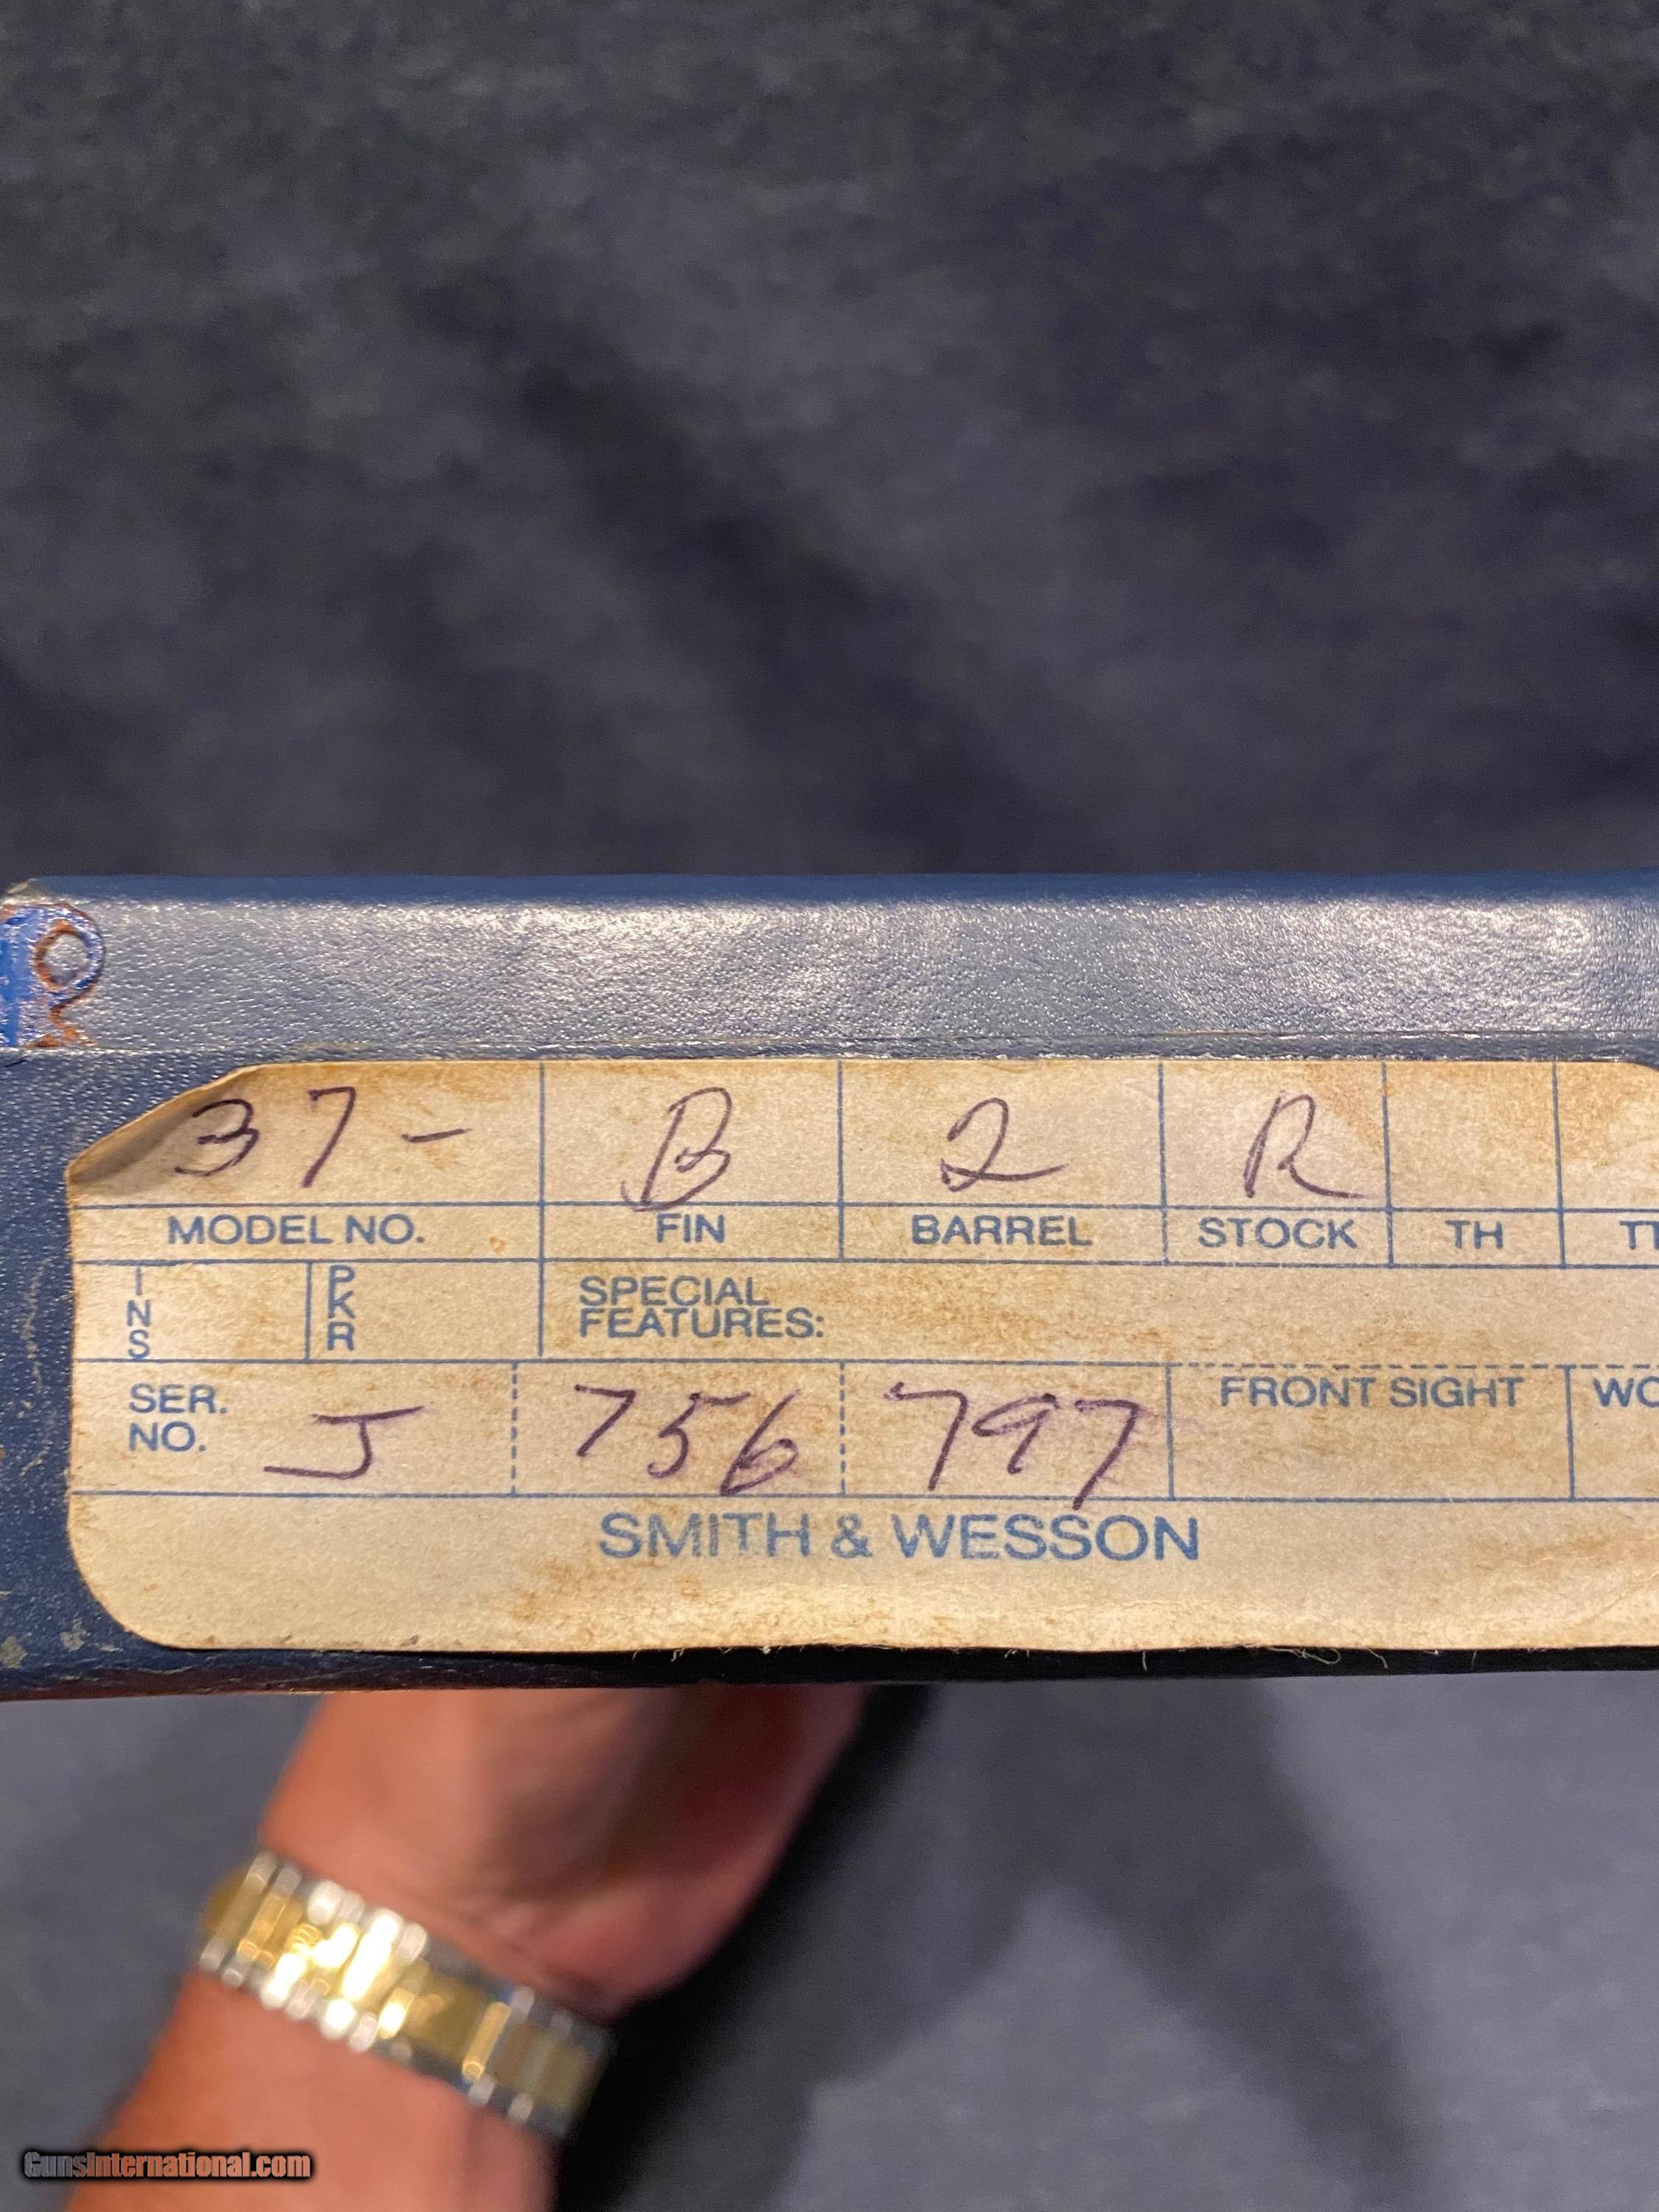 37- B 2 R
MODEL NO. FIN BARREL STOCK TH
INS PKR SPECIAL
FEATURES:
SER.
NO. J 756 797 FRONT SIGHT
SMITH & WESSON
GunsInternational.com